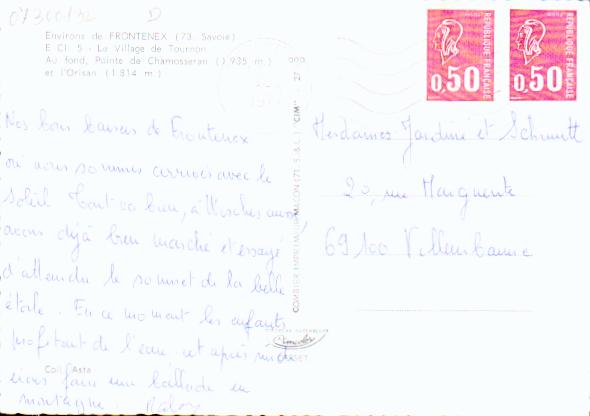 07300/32 D
Environs de FRONTENEX (73. Savoie)
E Cl. 5 - Le Village de Tournon
Au fond, Pointe de Chamosseran (1 935 m.)
et l'Orisan (1 814 m.)
RÉPUBLIQUE FRANÇAISE
0,50
RÉPUBLIQUE FRANÇAISE
0,50
Nos bons baisers de Frontenex
où nous sommes arrivés avec le
soleil Tout va bien,
avons déjà bien marché et essayé
d'atteindre le sommet de la belle
étoile. En ce moment les enfants
profitent de l'eau. cet après midi
irons faire une ballade en
montagne.
COMBIER IMPRIMEUR MACON (71. S.&L.) "CIM"
Mesdames Jardine et Schmitt
20, rue Marguerite
69100 Villeurbanne
Coll. Asta